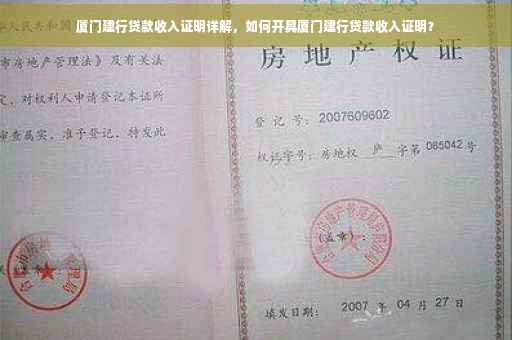 厦门建行贷款收入证明详解，如何开具厦门建行贷款收入证明？
人民共和国
市房地产管理法》及有关法
定，对权利人申请登记本证所
审查属实，准予登记，特发此
房地产权证
登记号：2007609602
权证字号：房地权 庐 字第 085042 号
（盖章）：
填发日期：2007 年 04 月 27 日